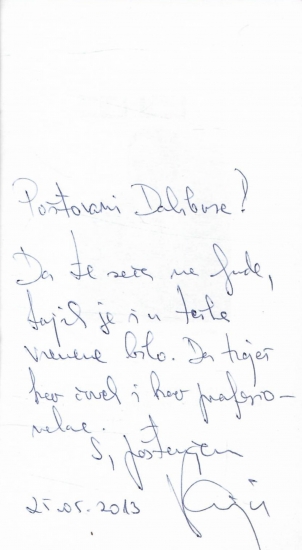 Poštovani Dalibore!
Da te seća na ljude,
je i u teška
vremena bilo. Da traješ
kao čovek i kao profesio-
nalac.
S, poštovanjem
25.05.2013